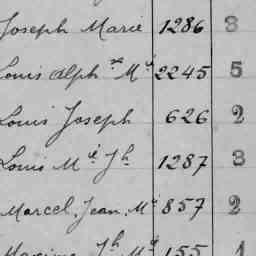 Joseph Marie 1286 3
Louis Alph.se M.ie 2245 5
Louis Joseph 626 2
Louis M.ie J.h 1287 3
Marcel Jean M.ie 857 2
Maxime J.h M.ie 155 1